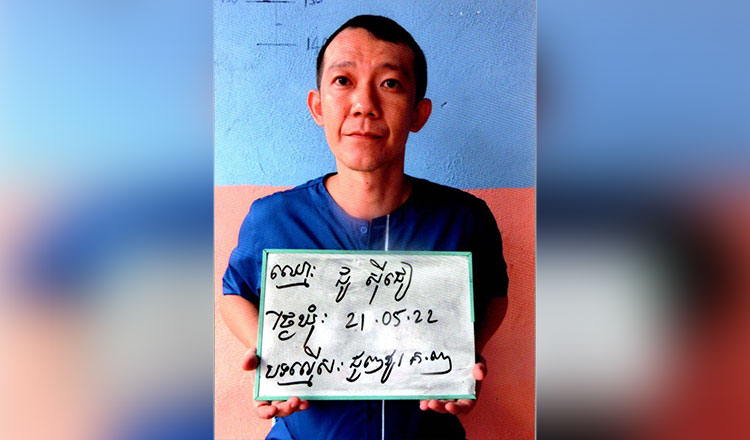 ឈ្មោះ ជូ ស៊ីជៀ
ថ្ងៃឃុំ: 21.05.22
បទល្មើស: ជួញដូរ គ.ញ